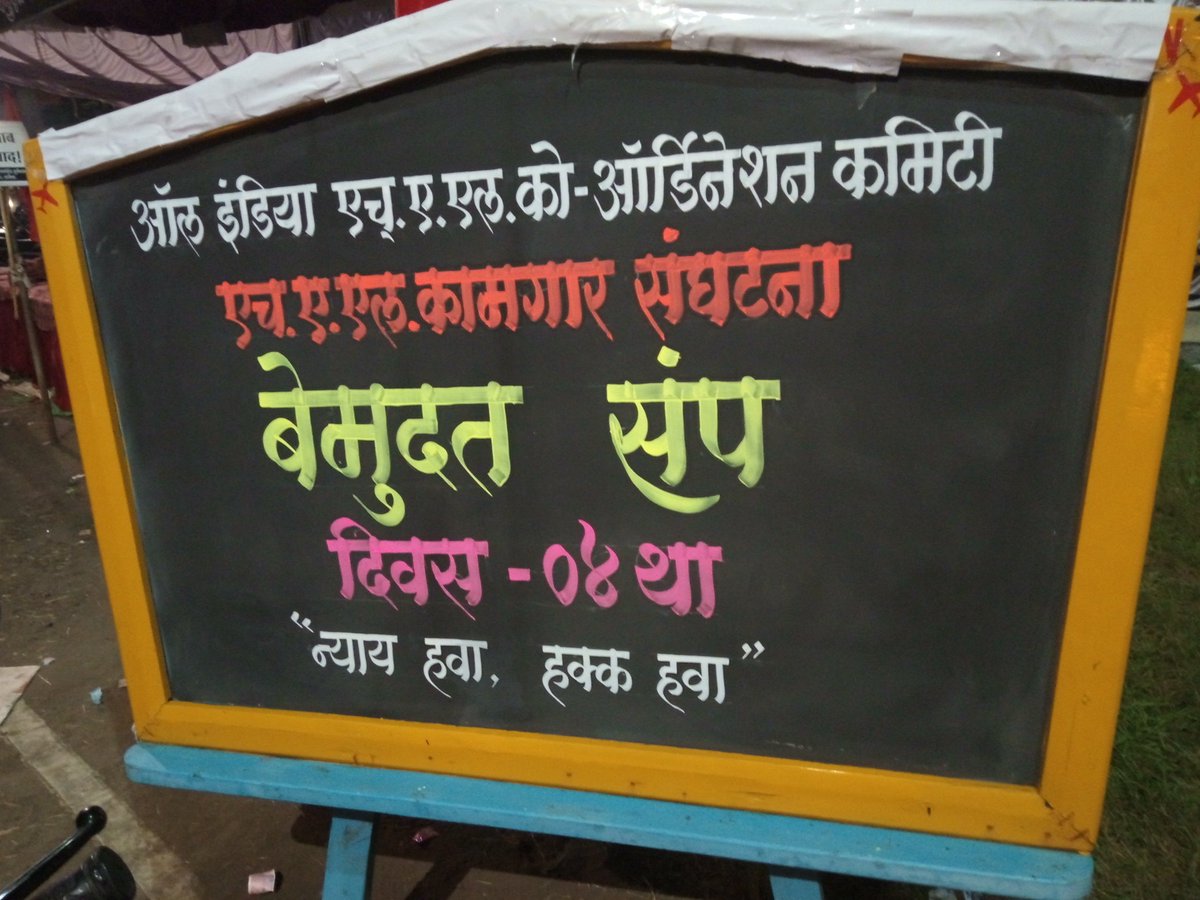 ऑल इंडिया एच्.ए.एल.को-ऑर्डिनेशन कमिटी
एच.ए.एल.कामगार संघटना
बेमुदत संप
दिवस - ०४ था
“न्याय हवा, हक्क हवा”